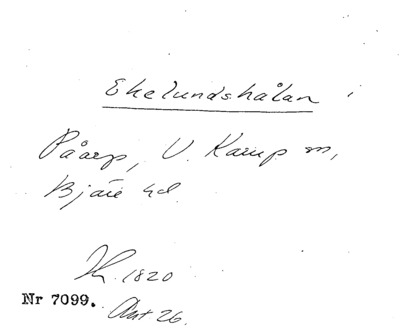 Ekelundshålan
Påarp, V. Karup m,
Bjäre hd.
K. 1820
Nr 7099.
Ant 26.